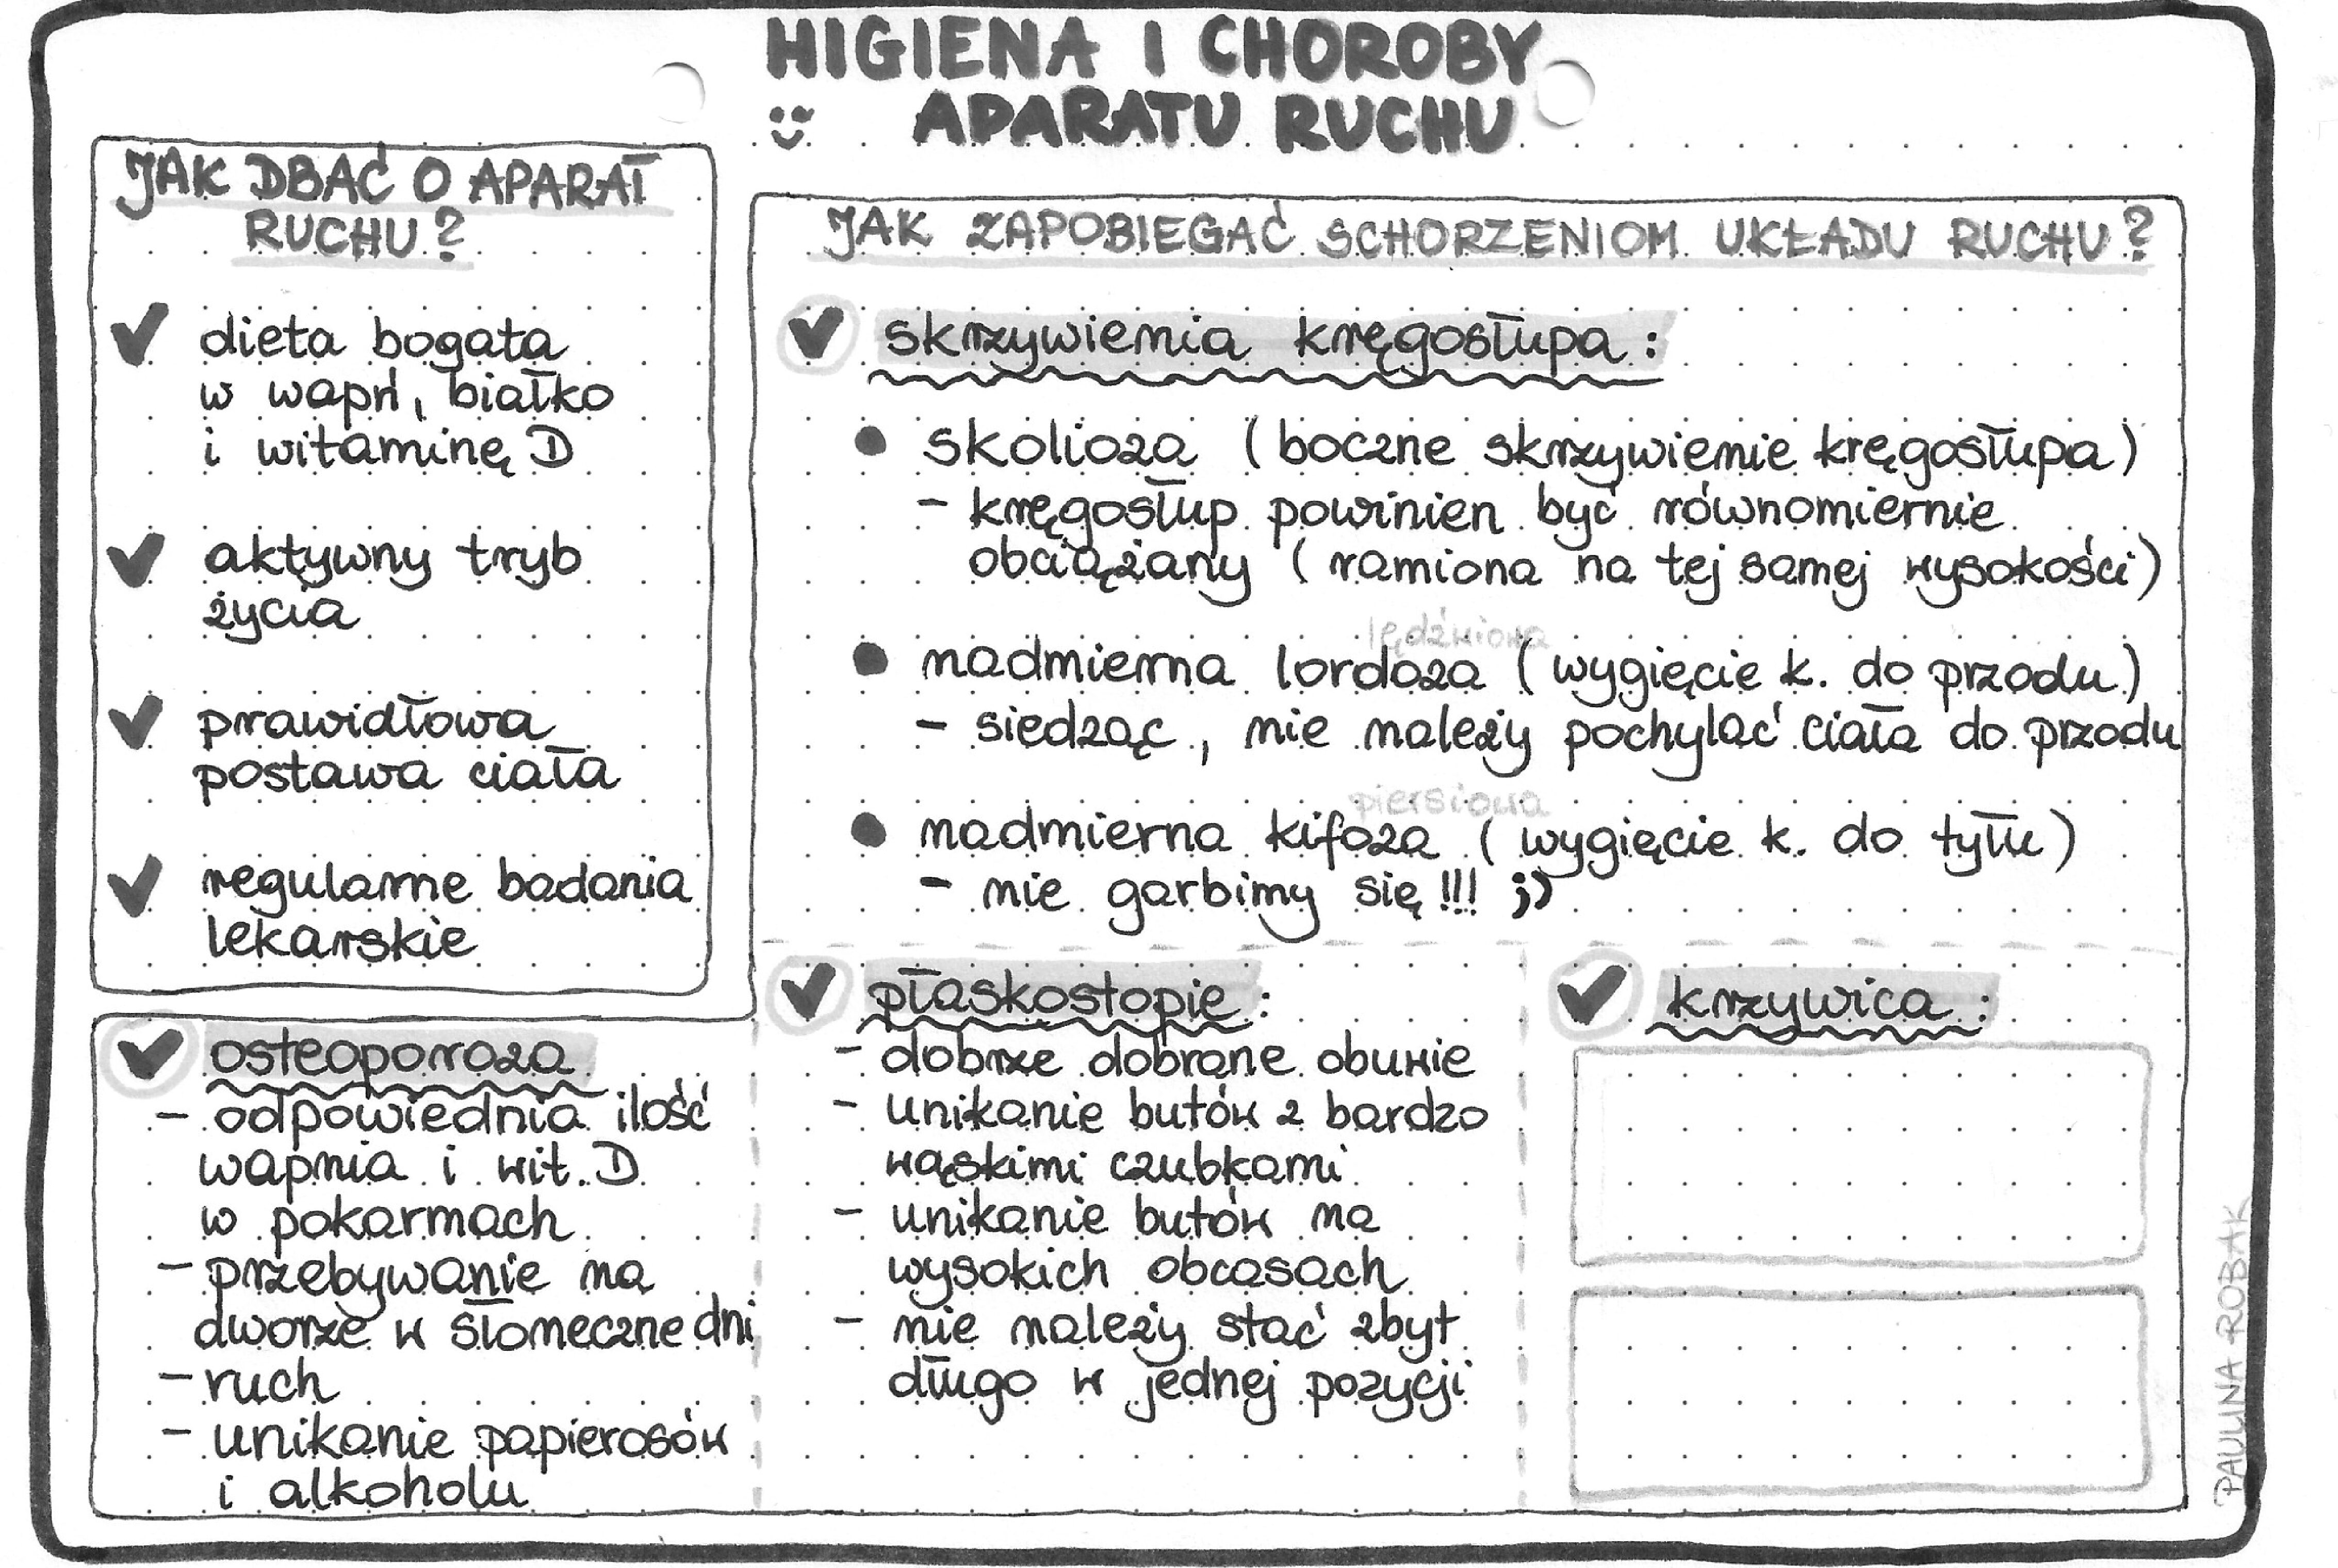 HIGIENA I CHOROBY
APARATU RUCHU
JAK DBAĆ O APARAT
RUCHU?
dieta bogata
w wapń, białko
i witaminę D
aktywny tryb
życia
prawidłowa
postawa ciała
regularne badania
lekarskie
JAK ZAPOBIEGAĆ SCHORZENIOM UKŁADU RUCHU?
skrzywienia kręgosłupa:
• skolioza (boczne skrzywienie kręgosłupa)
- kręgosłup powinien być równomiernie
obciążany (ramiona na tej samej wysokości)
lędźwiowa
• nadmierna lordoza (wygięcie k. do przodu)
- siedząc, nie należy pochylać ciała do przodu
piersiowa
• nadmierna kifoza (wygięcie k. do tyłu)
- nie garbimy się!!! ;)
osteoporoza
- odpowiednia ilość
wapnia i wit. D
w pokarmach
- przebywanie na
dworze w słoneczne dni
- ruch
- unikanie papierosów
i alkoholu
płaskostopie:
- dobrze dobrane obuwie
- unikanie butów z bardzo
wąskimi czubkami
- unikanie butów na
wysokich obcasach
- nie należy stać zbyt
długo w jednej pozycji
krzywica:
PAULINA ROBAK